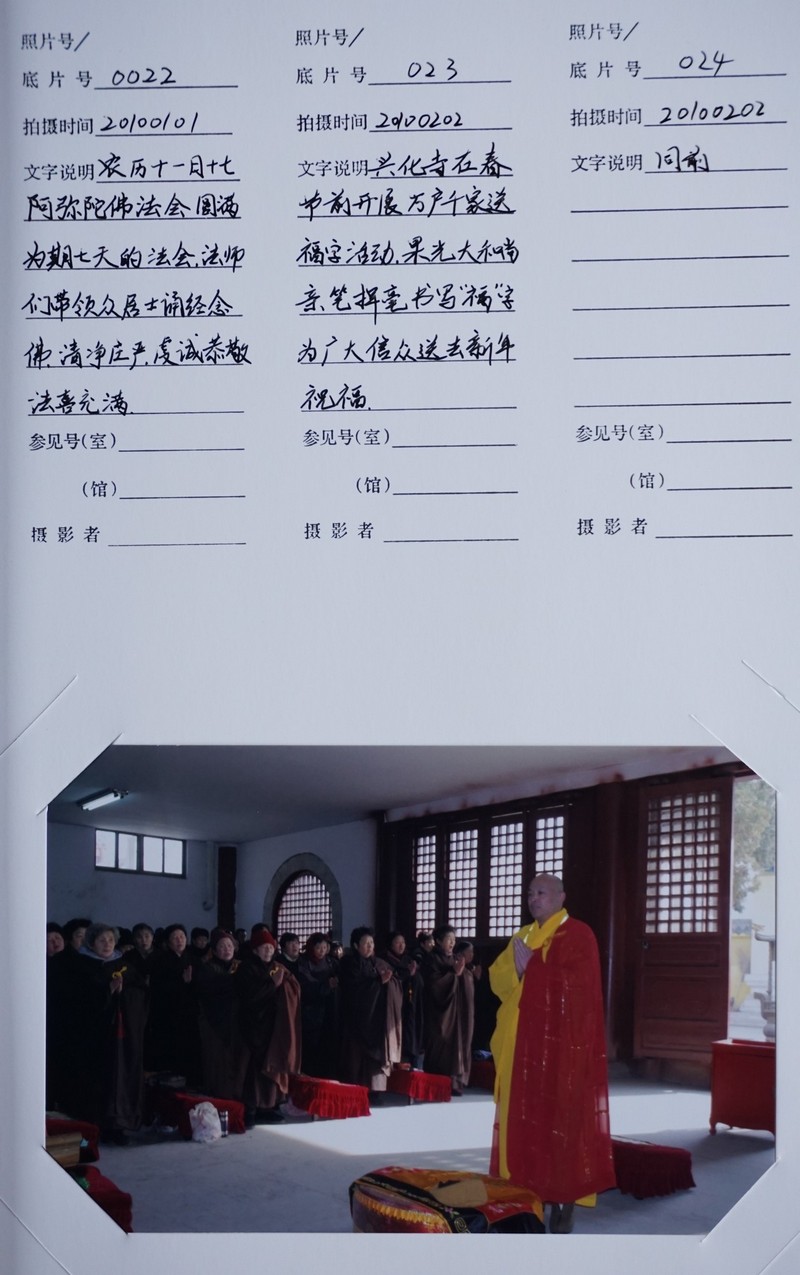 照片号/
底片号 0022
拍摄时间 20100101
文字说明 农历十一日十七
阿弥陀佛法会圆满
为期七天的法会,法师
们带领众居士诵经念
佛,清净庄严,虔诚恭敬
法喜充满.
参见号(室)
(馆)
摄影者
照片号/
底片号 023
拍摄时间 20100202
文字说明 兴化寺在春
节前开展为户千家送
福字活动.果光大和尚
亲笔挥毫书写"福"字
为广大信众送去新年
祝福.
参见号(室)
(馆)
摄影者
照片号/
底片号 024
拍摄时间 20100202
文字说明 同前
参见号(室)
(馆)
摄影者